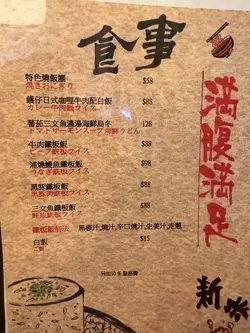 食事
特色燒飯團 $58
焼きおにぎり
鐵仔日式咖喱牛肉配白飯 $88
カレー牛肉鍋ライス
蕃茄三文魚濃湯海鮮烏冬 128
トマトサーモンスープ海鮮うどん
牛肉鐵板飯 $88
ビーフ鉄板ライス
蒲燒鰻魚鐵板飯 $98
うなぎ鉄板ライス
黑豚鐵板飯 $88
黒豚肉鉄板ライス
三文魚鐵板飯 $88
鮭魚鉄板ライス
鐵板飯制法 黑椒汁,燒汁,辛口燒汁,生薑汁,走葱
白飯 $15
ご飯
另加10%服務費
満腹満足
新